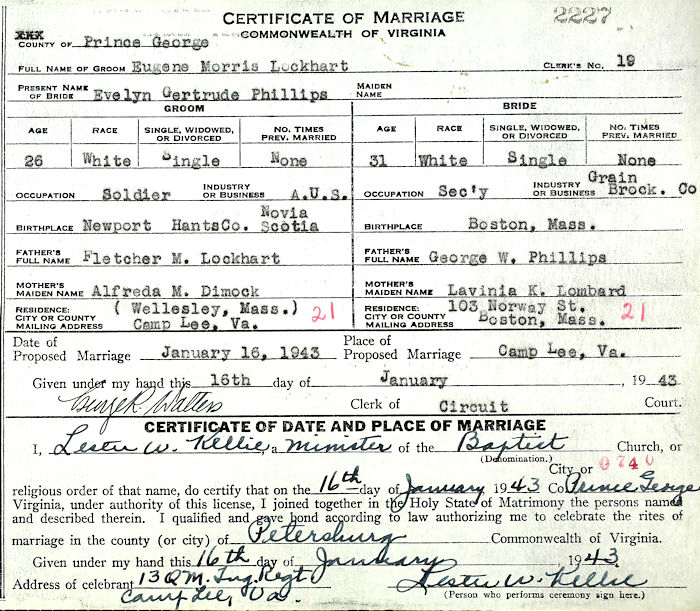 CERTIFICATE OF MARRIAGE 2227
XXX COMMONWEALTH OF VIRGINIA
COUNTY OF Prince George
FULL NAME OF GROOM Eugene Morris Lockhart CLERK'S NO. 19
PRESENT NAME OF BRIDE Evelyn Gertrude Phillips MAIDEN NAME
GROOM BRIDE
AGE RACE SINGLE, WIDOWED, OR DIVORCED NO. TIMES PREV. MARRIED AGE RACE SINGLE, WIDOWED, OR DIVORCED NO. TIMES PREV. MARRIED
26 White Single None 31 White Single None
OCCUPATION Soldier INDUSTRY OR BUSINESS A.U.S. OCCUPATION Sec'y INDUSTRY OR BUSINESS Grain Brock. Co
BIRTHPLACE Newport HantsCo. Novia Scotia BIRTHPLACE Boston, Mass.
FATHER'S FULL NAME Fletcher M. Lockhart FATHER'S FULL NAME George W. Phillips
MOTHER'S MAIDEN NAME Alfreda M. Dimock MOTHER'S MAIDEN NAME Lavinia K. Lombard
RESIDENCE: CITY OR COUNTY MAILING ADDRESS ( Wellesley, Mass.) Camp Lee, Va. 21 RESIDENCE: CITY OR COUNTY MAILING ADDRESS 103 Norway St. Boston, Mass. 21
Date of Proposed Marriage January 16, 1943 Place of Proposed Marriage Camp Lee, Va.
Given under my hand this 16th day of January , 1943
Walters Clerk of Circuit Court.
CERTIFICATE OF DATE AND PLACE OF MARRIAGE
I, Lester W. Kellie, a minister of the Baptist Church, or
(Denomination.) City or 0740
religious order of that name, do certify that on the 16th day of January 1943 Co Prince George
Virginia, under authority of this license, I joined together in the Holy State of Matrimony the persons named
and described therein. I qualified and gave bond according to law authorizing me to celebrate the rites of
marriage in the county (or city) of Petersburg Commonwealth of Virginia.
Given under my hand this 16th day of January 1943.
Address of celebrant 13 Q.M. Tng. Regt. Lester W. Kellie
Camp Lee, Va. (Person who performs ceremony sign here.)